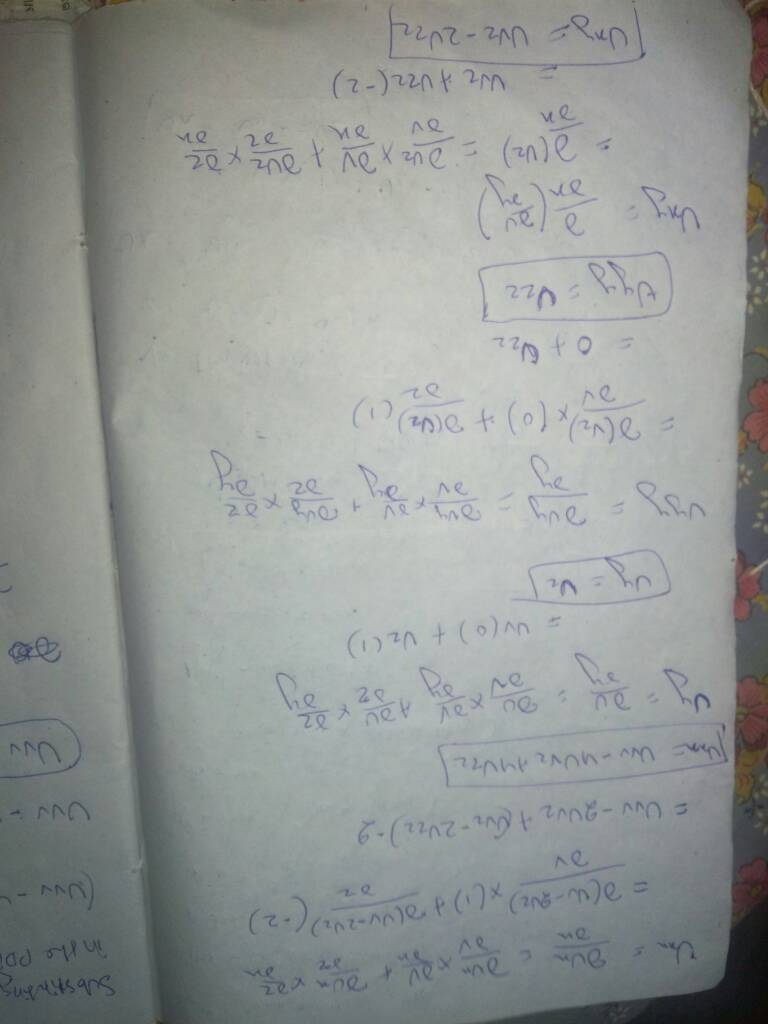 Uxx = ∂Ux/∂x = ∂Ux/∂v × ∂v/∂x + ∂Ux/∂z × ∂z/∂x
= ∂(Uv-2Uz)/∂v × (1) + ∂(Uv-2Uz)/∂z (-2)
= Uvv - 2Uvz + (Uvz - 2Uzz) - 2
Uxx = Uvv - 4Uvz + 4Uzz
Uy = ∂U/∂y = ∂U/∂v × ∂v/∂y + ∂U/∂z × ∂z/∂y
= Uv(0) + Uz(1)
Uy = Uz
Uyy = ∂Uy/∂y = ∂Uy/∂v × ∂v/∂y + ∂Uy/∂z × ∂z/∂y
= ∂(Uz)/∂v × (0) + ∂(Uz)/∂z (1)
= 0 + Uzz
Uyy = Uzz
Uxy = ∂/∂x (∂U/∂y)
= ∂/∂x (Uz) = ∂Uz/∂v × ∂v/∂x + ∂Uz/∂z × ∂z/∂x
= Uvz + Uzz(-2)
Uxy = Uvz - 2Uzz
Substituting
in the PD
(Uvv -
Uvv -
Uvv